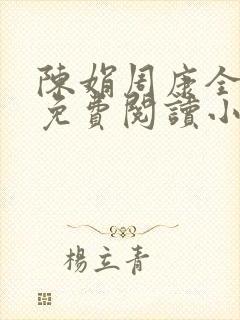 陳娟周康全
免費閱讀小
楊立青